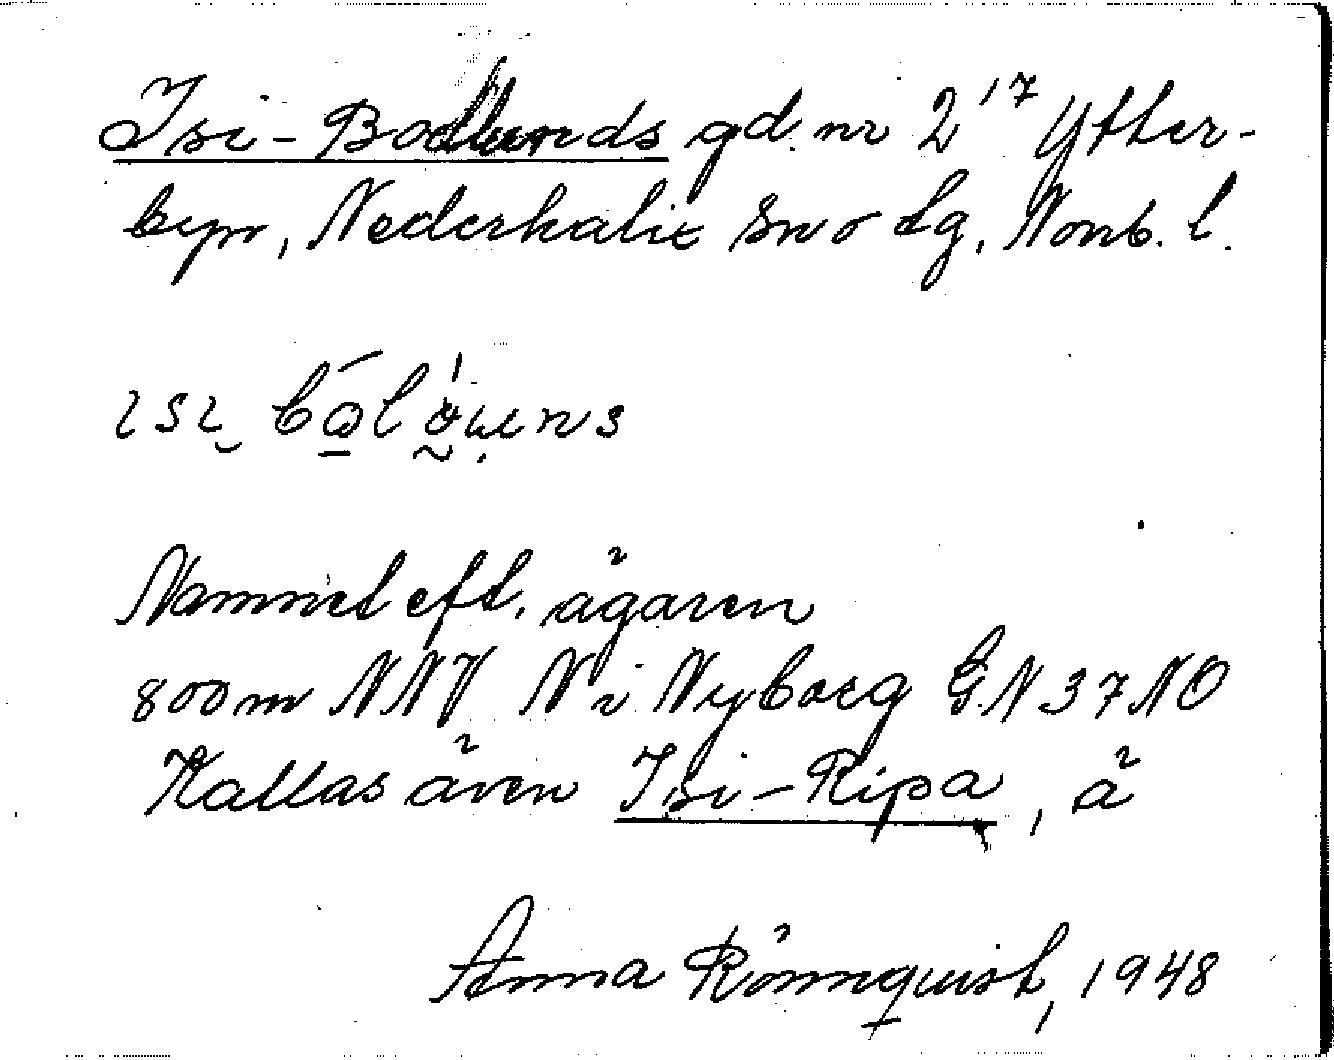 Isi-Bodlunds gd. nr 2¹⁷ Ytter-
byn, Nederkalix sn o tg, Norrb. l.
Namnet eft. ägaren
800 m NNV N i Nyborg G.N 37 NO
Kallas även Isi-Ripa, ä
Anna Rönnquist, 1948